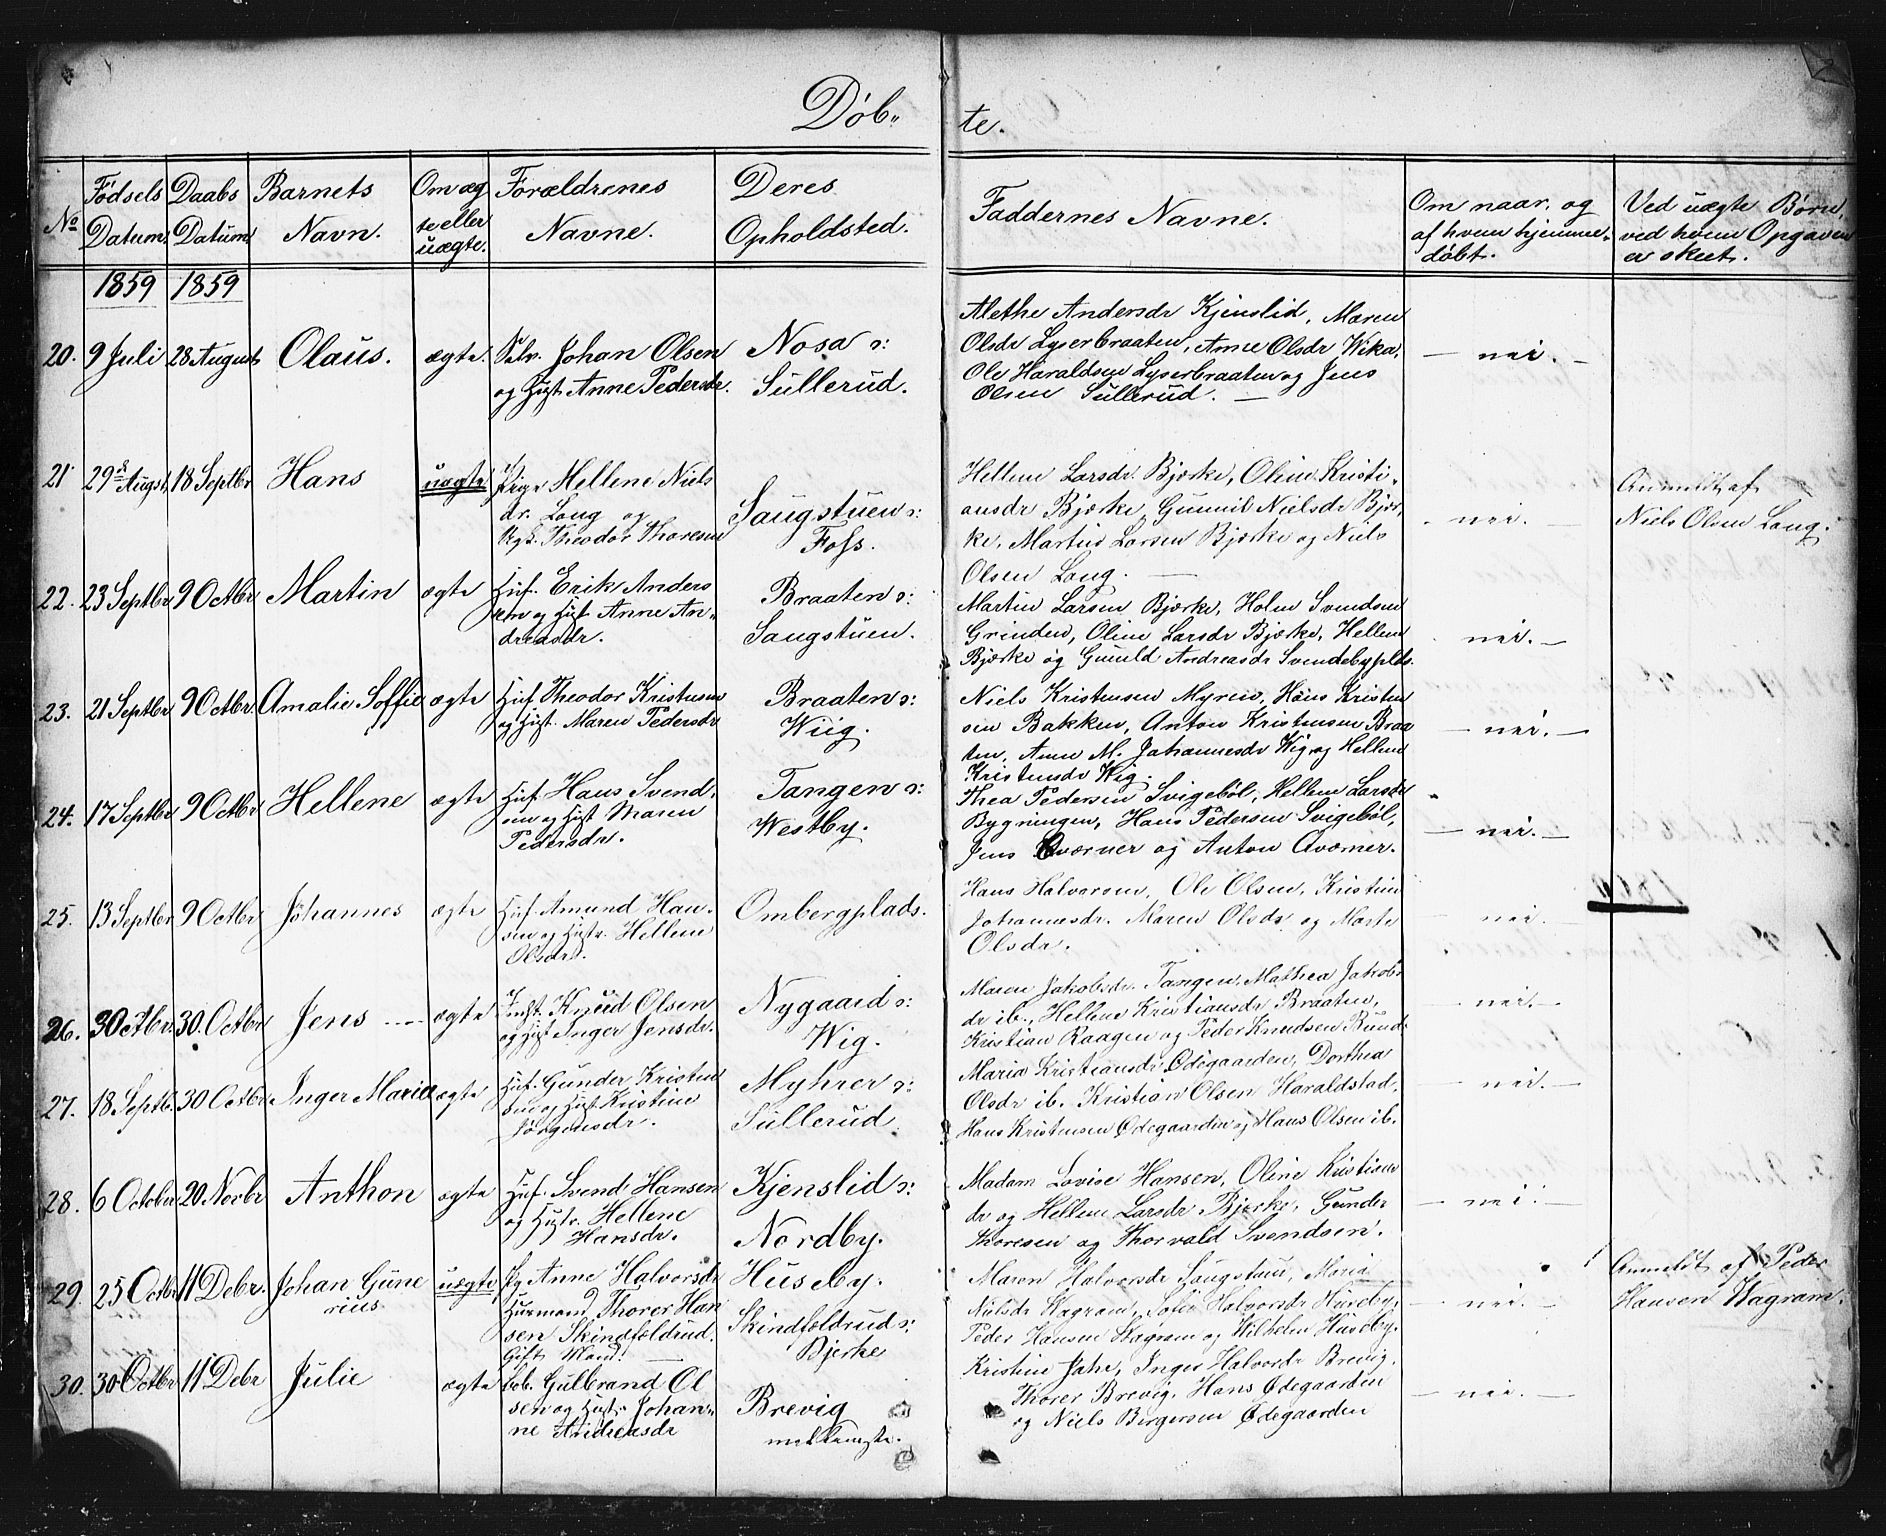 Døb„ te.
No
Fødsels Datum.
Daabs Datum.
Barnets Navn.
Om æg te eller uægte.
Forældrenes Navne.
Deres Opholdsted.
Faddernes Navne.
Om naar, og af hvem hjemme„ døbt.
Ved uægte Børn, ved hvem Opgaven er skeet.
1859 1859
20. 9 Juli 28 August Olaus. ægte. Selv. Johan Olsen
og Hust. Anne Pedersdr.
Nosa o:
Sullerud.
Alethe Andersdr Kjenslid, Maren
Olsdr Lyserbraaten, Anne Olsdr Wika,
Ole Haraldsen Lyserbraaten og Jens
Olsen Sullerud. —
— nei. —
21 29 Augst. 18 Septbr Hans uægte Pige Hellene Niels
dr. Loug og
Ugk. Theodor Thoresen
Saugstuen o:
Foss.
Hellene Larsdr. Bjerke, Oline Kristi„
ansdr Bjørke, Gunnil Nielsdr Bjør„
ke, Martin Larsen Bjerke og Niels
Olsen Loug. —
- nei. —
Anmeldt af
Niels Olsen Loug.
22. 23 Septbr 9 Octbr Martin ægte Huf. Erik Anders
sen og Hust. Anne An„
dreasdr.
Braaten o:
Saugstuen.
Martin Larsen Bjørke, Holm Svendsen
Grinden, Oline Larsdr Bjørke, Hellene
Bjørke og Gunild Andreasdr Svendsbyplds.
nei. —
23. 21 Septbr 9 Octbr. Amalie Soffie ægte Huf. Theodor Kristensen
og Hust. Maren Pedersdr
Braaten o:
Wiig.
Niels Kristensen Myren, Hans Kristen
sen Bakken, Anton Kristensen Braa
ten, Anne M. Johannesdr Wig og Hellene
Kristensdr Wig.
— nei. —
24. 17 Septbr 9 Octbr Hellene ægte Huf. Hans Svend„
sen og Hust Maren
Pedersdr.
Tangen o:
Westby.
Thea Pedersen Svigebøl, Hellene Larsdr
Bygningen, Hans Pedersen Svigebøl,
Jens Qværner og Anton Qværner.
— nei. —
25. 13 Septbr 9 Octbr. Johannes ægte Huf. Amund Han„
sen og Hustr. Hellene
Olsdr.
Ombergplads.
Hans Halvorsen, Ole Olsen, Kristine
Johannesdr. Maren Olsdr og Marte
Olsdr.
— nei. —
26. 3 Octbr. 30. Octbr Jens — ægte Indst. Knud Olsen
og Hust Inger Jensdr.
Nygaard o:
Wig.
Maren Jakobsdr. Tangen, Mathea Jakobs
dr ib., Hellene Kristiansdr Braaten,
Kristian Kaagen og Peder Knudsen Rund
— nei. —
27. 18 Septbr. 30 Octbr. Inger Marie ægte Huf. Gunder Kristen
sen og Hust. Kristine
Jörgensdr.
Myhrer o:
Sullerud
Maria Kristiansdr Ødegaarden, Dorthea
Olsdr ib. Kristian Olsen Haraldstad,
Hans Kristensen Ødegaarden og Hans Olsen ib.
— nei. —
28. 6 October 20. Novbr Anthon ægte Huf. Svend Hansen
og Hustr. Hellene
Hansdr.
Kjenslid o:
Nordby.
Madam Lovise Hansen, Oline Kristians
dr og Hellene Larsdr Bjerke, Gunder
Thoresen og Thorvald Svendsen.
— nei. —
29. 25 Octbr 11 Debr. Johan Gune
rius
uægte Pg Anne Halvorsdr
Huusmand Thorer Han
sen Skindfældrud.
Gift Mand. —
Huseby.
Skindfældrud o:
Bjerke
Maren Halvorsdr Saugstuen, Maria
Nielsdr Wagram, Sofie Halvorsdr Huseby,
Peder Hansen Wagram og Wilhelm Huseby.
— nei. —
Anmeldt af Peder
Hansen Wagram.
30. 30 Octbr 11 Debr Julie ægte Geb. Gulbrand Ol
sen og Hust. Johan„
ne Andreasdr
Brevig
mellemste.
Kristine Jahr, Inger Halvorsdr Brevig,
Thorer Brevig, Hans Ødegaarden
og Niels Birgersen Ødegaarden
— nei. —